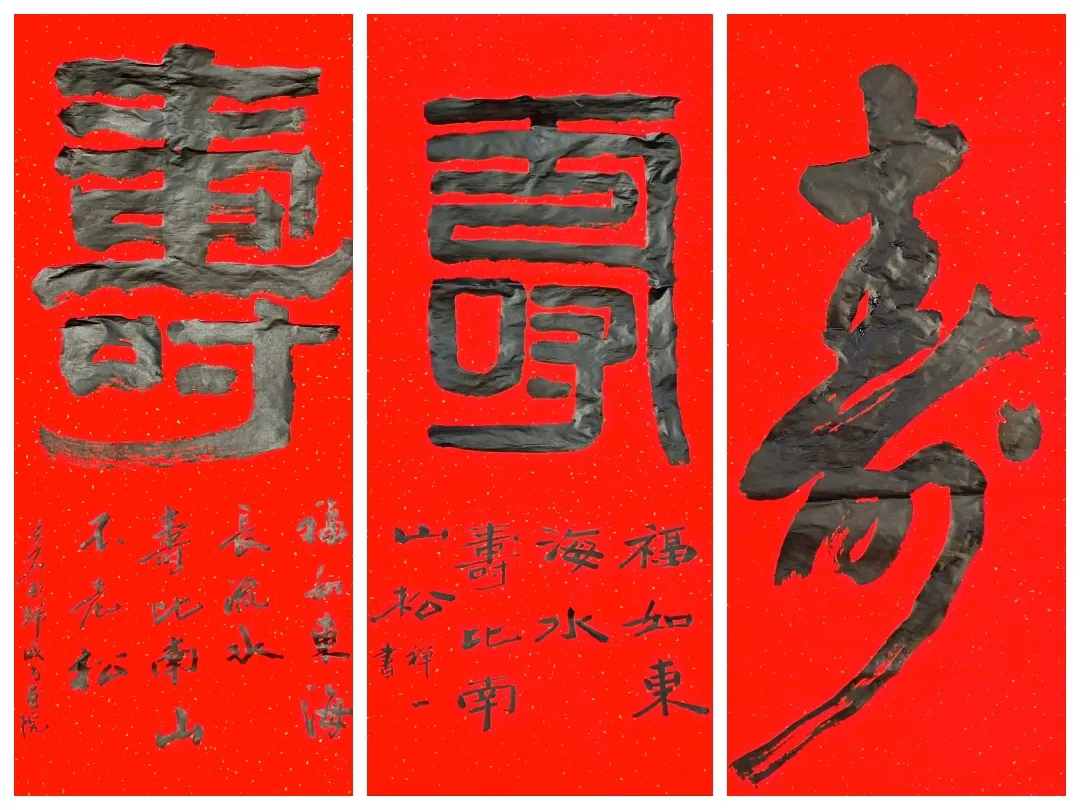 壽
福如東海
長流水
壽比南山
不老松
壽
福如東
海水
壽比南
山松
禅一
書
寿